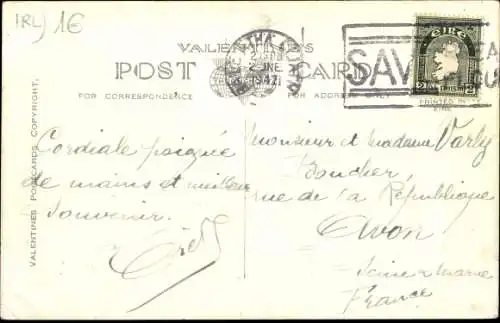 (IRL) 1€
VALENTINE'S
POST CARD
FOR CORRESPONDENCE FOR ADDRESS ONLY
PRINTED IN
VALENTINES POSTCARDS COPYRIGHT.
1947
SAV
EIRE
2½ 2½
Cordiale poignée
de mains et meilleur
souvenir.
Monsieur et Madame Varly
Boucher
rue de la République
Avon
Seine & Marne
France